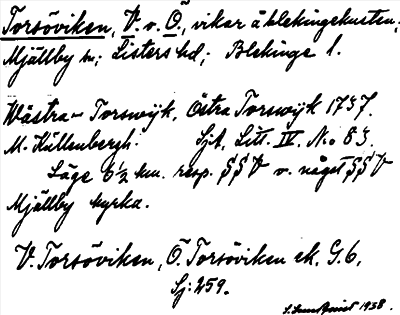 Torsöviken, V. o. Ö., vikar å blekingekusten;
Mjällby sn; Listers hd; Blekinge l.
Wästra- Torswÿk, Östra Torswÿk 1737.
M. Küllenbergh. Sjk. Litt. IV. N:o 83.
Läge 6½ km. resp. §§V o. något §§V
Mjällby kyrka.
V. Torsöviken, Ö. Torsöviken ek. G.6,
Sj: 259.
1938.